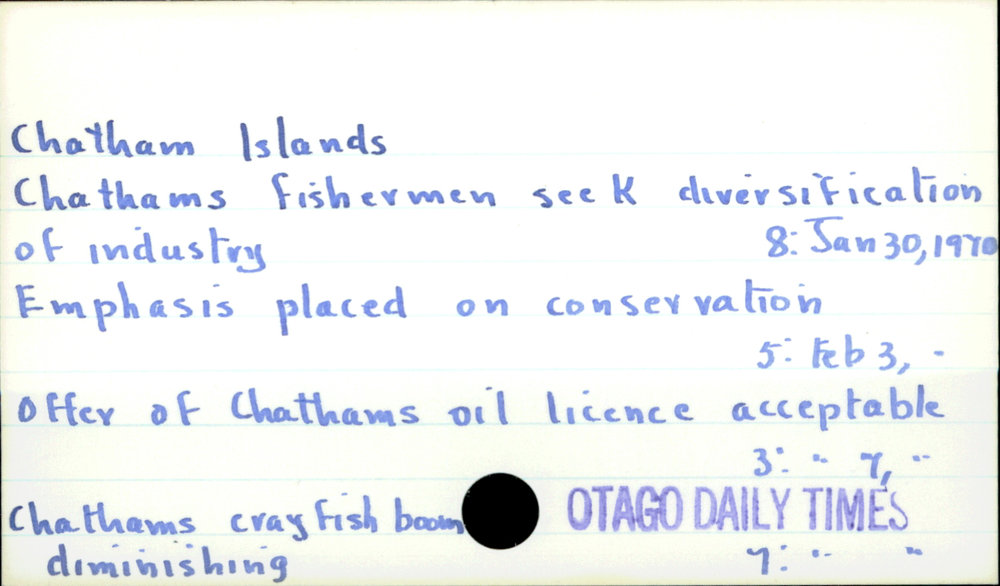 Chatham Islands
Chathams fishermen seek diversification
of industry 8: Jan 30, 1970
Emphasis placed on conservation
5: Feb 3, "
Offer of Chathams oil licence acceptable
3: " 7, "
Chathams crayfish boom OTAGO DAILY TIMES
diminishing 7: " "